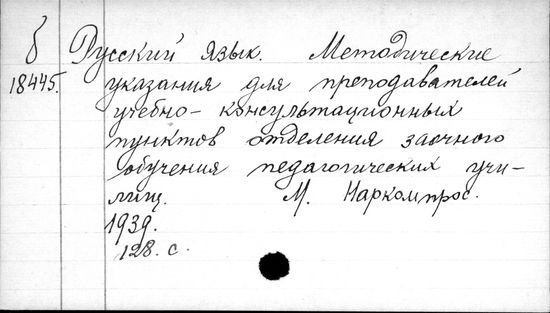 б Русский язык. Методические
18445. указания для преподавателей
учебно-консультационных
пунктов отделения заочного
обучения педагогических учи-
лищ. М. Наркомпрос.
1939.
128. с.